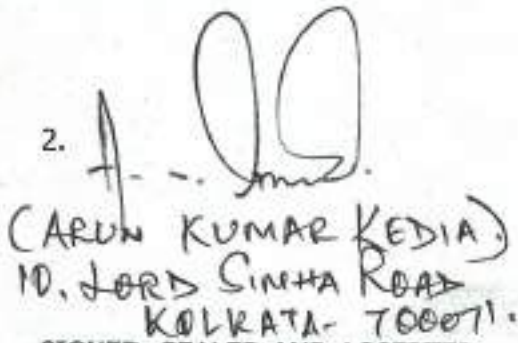 2.
(ARUN KUMAR KEDIA).
10, LORD SINHA ROAD
KOLKATA- 700071.